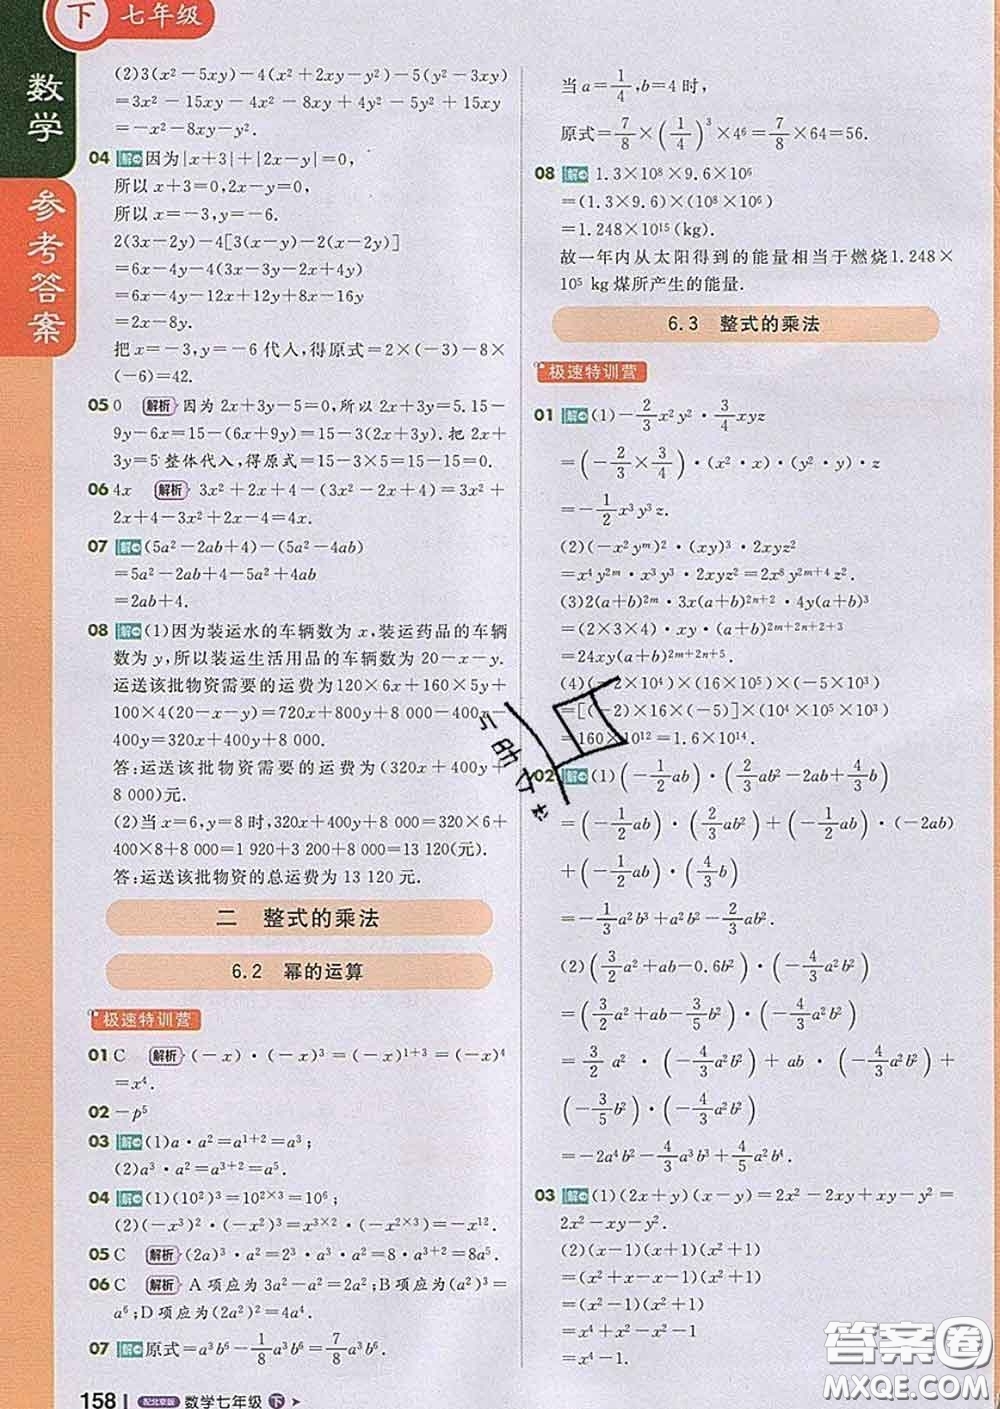 下 七年级
数学
参考答案
(2)3(x²-5xy)-4(x²+2xy-y²)-5(y²-3xy)
=3x²-15xy-4x²-8xy+4y²-5y²+15xy
=-x²-8xy-y².
04 解 因为|x+3|+|2x-y|=0,
所以x+3=0,2x-y=0,
所以x=-3,y=-6.
2(3x-2y)-4[3(x-y)-2(x-2y)]
=6x-4y-4(3x-3y-2x+4y)
=6x-4y-12x+12y+8x-16y
=2x-8y.
把x=-3,y=-6代入,得原式=2×(-3)-8×
(-6)=42.
05 0 解析 因为2x+3y-5=0,所以2x+3y=5.15-
9y-6x=15-(6x+9y)=15-3(2x+3y).把2x+
3y=5整体代入,得原式=15-3×5=15-15=0.
06 4x 解析 3x²+2x+4-(3x²-2x+4)=3x²+
2x+4-3x²+2x-4=4x.
07 解 (5a²-2ab+4)-(5a²-4ab)
=5a²-2ab+4-5a²+4ab
=2ab+4.
08 解 (1)因为装运水的车辆数为x,装运药品的车辆
数为y,所以装运生活用品的车辆数为20-x-y.
运送该批物资需要的运费为120×6x+160×5y+
100×4(20-x-y)=720x+800y+8 000-400x-
400y=320x+400y+8 000.
答:运送该批物资需要的运费为(320x+400y+
8 000)元.
(2)当x=6,y=8时,320x+400y+8 000=320×6+
400×8+8 000=1 920+3 200+8 000=13 120(元).
答:运送该批物资的总运费为13 120元.
二 整式的乘法
6.2 幂的运算
极速特训营
01 C 解析 (-x)·(-x)³=(-x)¹⁺³=(-x)⁴
=x⁴.
02 -p⁵
03 解 (1)a·a²=a¹⁺²=a³;
(2)a³·a²=a³⁺²=a⁵.
04 解 (1)(10²)³=10²ˣ³=10⁶;
(2)(-x³)²·(-x²)³=x³ˣ²·(-x²ˣ³)=-x¹².
05 C 解析 (2a)³·a²=2³·a³·a²=8·a³⁺²=8a⁵.
06 C 解析 A项应为3a²-a²=2a²;B项应为(a²)³=
a⁶;D项应为(2a²)²=4a⁴.
07 解 原式=a³b⁶-1/8a³b⁶=7/8a³b⁶.
158 配北京版 数学七年级 下
当a=1/4,b=4时,
原式=7/8×(1/4)³×4⁶=7/8×64=56.
08 解 1.3×10⁸×9.6×10⁶
=(1.3×9.6)×(10⁸×10⁶)
=1.248×10¹⁵(kg).
故一年内从太阳得到的能量相当于燃烧1.248×
10⁵ kg煤所产生的能量.
6.3 整式的乘法
极速特训营
01 解 (1)-2/3x²y²·3/4xyz
=(-2/3×3/4)·(x²·x)·(y²·y)·z
=-1/2x³y³z.
(2)(-x²yᵐ)²·(xy)³·2xyz²
=x⁴y²ᵐ·x³y³·2xyz²=2x⁸y²ᵐ⁺⁴z².
(3)2(a+b)²ᵐ·3x(a+b)²ⁿ⁺²·4y(a+b)³
=(2×3×4)·xy·(a+b)²ᵐ⁺²ⁿ⁺²⁺³
=24xy(a+b)²ᵐ⁺²ⁿ⁺⁵.
(4)(-2×10⁴)×(16×10⁵)×(-5×10³)
=[(-2)×16×(-5)]×(10⁴×10⁵×10³)
=160×10¹²=1.6×10¹⁴.
02 解 (1)(-1/2ab)·(2/3ab²-2ab+4/3b)
=(-1/2ab)·(2/3ab²)+(-1/2ab)·(-2ab)
+(-1/2ab)·(4/3b)
=-1/3a²b³+a²b²-2/3ab².
(2)(3/2a²+ab-0.6b²)·(-4/3a²b²)
=(3/2a²+ab-3/5b²)·(-4/3a²b²)
=3/2a²·(-4/3a²b²)+ab·(-4/3a²b²)+
(-3/5b²)·(-4/3a²b²)
=-2a⁴b²-4/3a³b³+4/5a²b⁴.
03 解 (1)(2x+y)(x-y)=2x²-2xy+xy-y²=
2x²-xy-y².
(2)(x-1)(x+1)(x²+1)
=(x²+x-x-1)(x²+1)
=(x²-1)(x²+1)
=x⁴+x²-x²-1
=x⁴-1.
答案圈
MXQE.COM